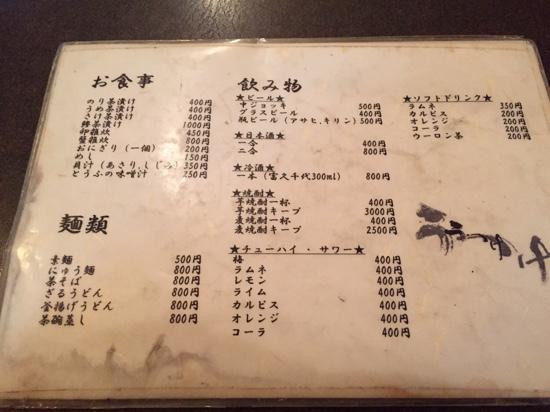 お食事
のり茶漬け 400円
うめ茶漬け 400円
さけ茶漬け 400円
鰻茶漬け 1000円
卵雑炊 450円
蟹雑炊 800円
おにぎり(一個) 200円
めし 150円
貝汁(あさり、しじみ) 350円
とうふの味噌汁 250円
麺類
素麺 500円
にゅう麺 800円
茶そば 800円
ざるうどん 800円
釜揚げうどん 800円
茶碗蒸し 800円
飲み物
★ビール★
中ジョッキ 500円
グラスビール 400円
瓶ビール(アサヒ、キリン) 500円
★日本酒★
一合 400円
二合 800円
★冷酒★
一本(富久千代300ml) 800円
★焼酎★
芋焼酎一杯 400円
芋焼酎キープ 3000円
麦焼酎一杯 400円
麦焼酎キープ 2500円
★チューハイ・サワー★
梅 400円
ラムネ 400円
レモン 400円
ライム 400円
カルピス 400円
オレンジ 400円
コーラ 400円
★ソフトドリンク★
ラムネ 350円
カルピス 200円
オレンジ 200円
コーラ 200円
ウーロン茶 200円